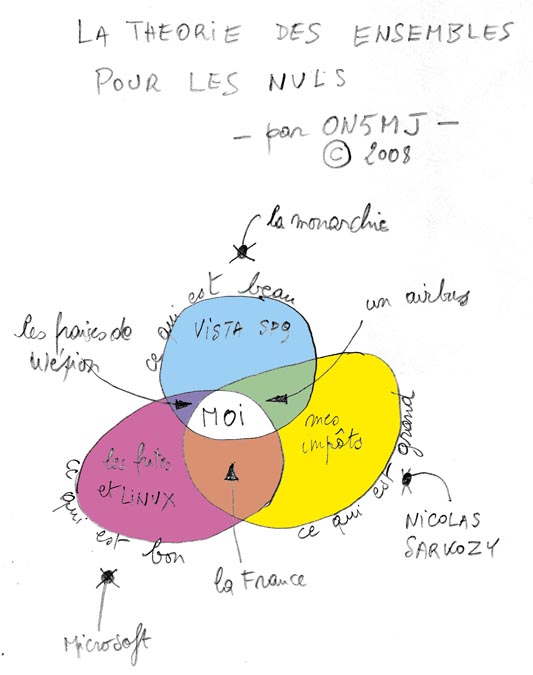 LA THEORIE DES ENSEMBLES
POUR LES NULS
- par ON5MJ -
© 2008
la monarchie
ce qui est beau
un airbus
VISTA SP9
les fraises de
Wépion
MOI
mes
impôts
les frites
et LINUX
ce qui est grand
ce qui est bon
NICOLAS
SARKOZY
la France
Microsoft